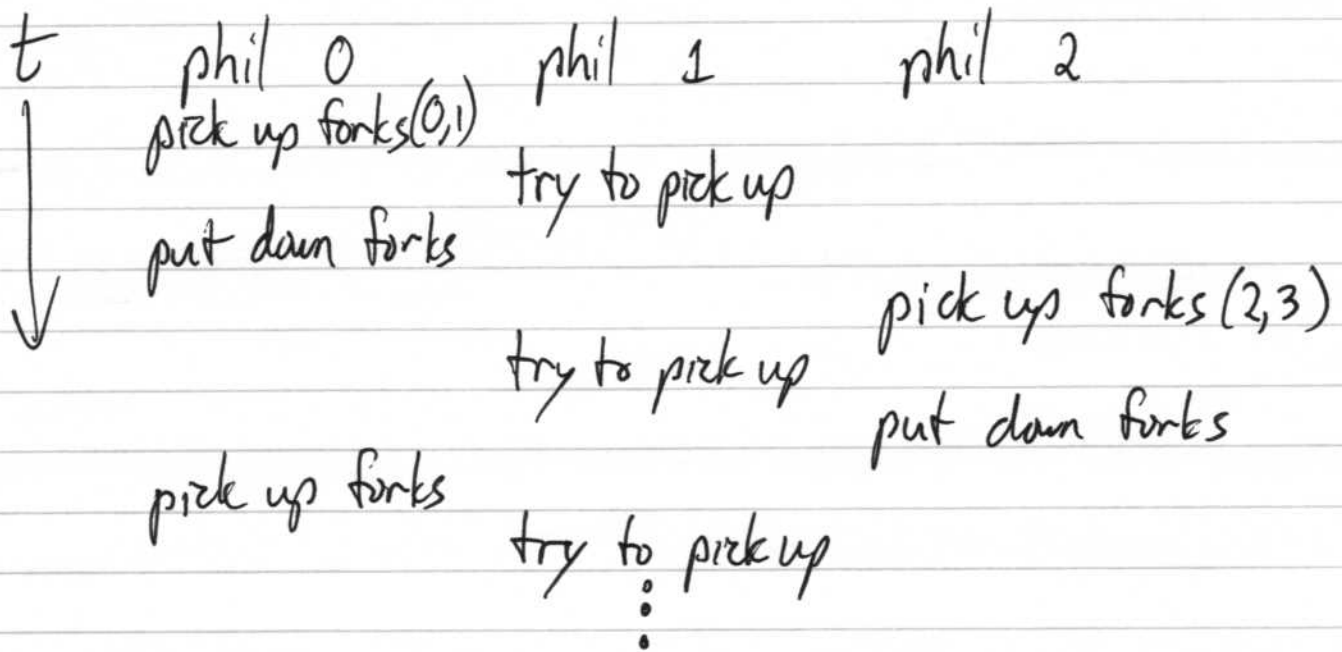 t phil 0 phil 1 phil 2
pick up forks(0,1)
try to pick up
put down forks
pick up forks (2,3)
try to pick up
put down forks
pick up forks
try to pick up